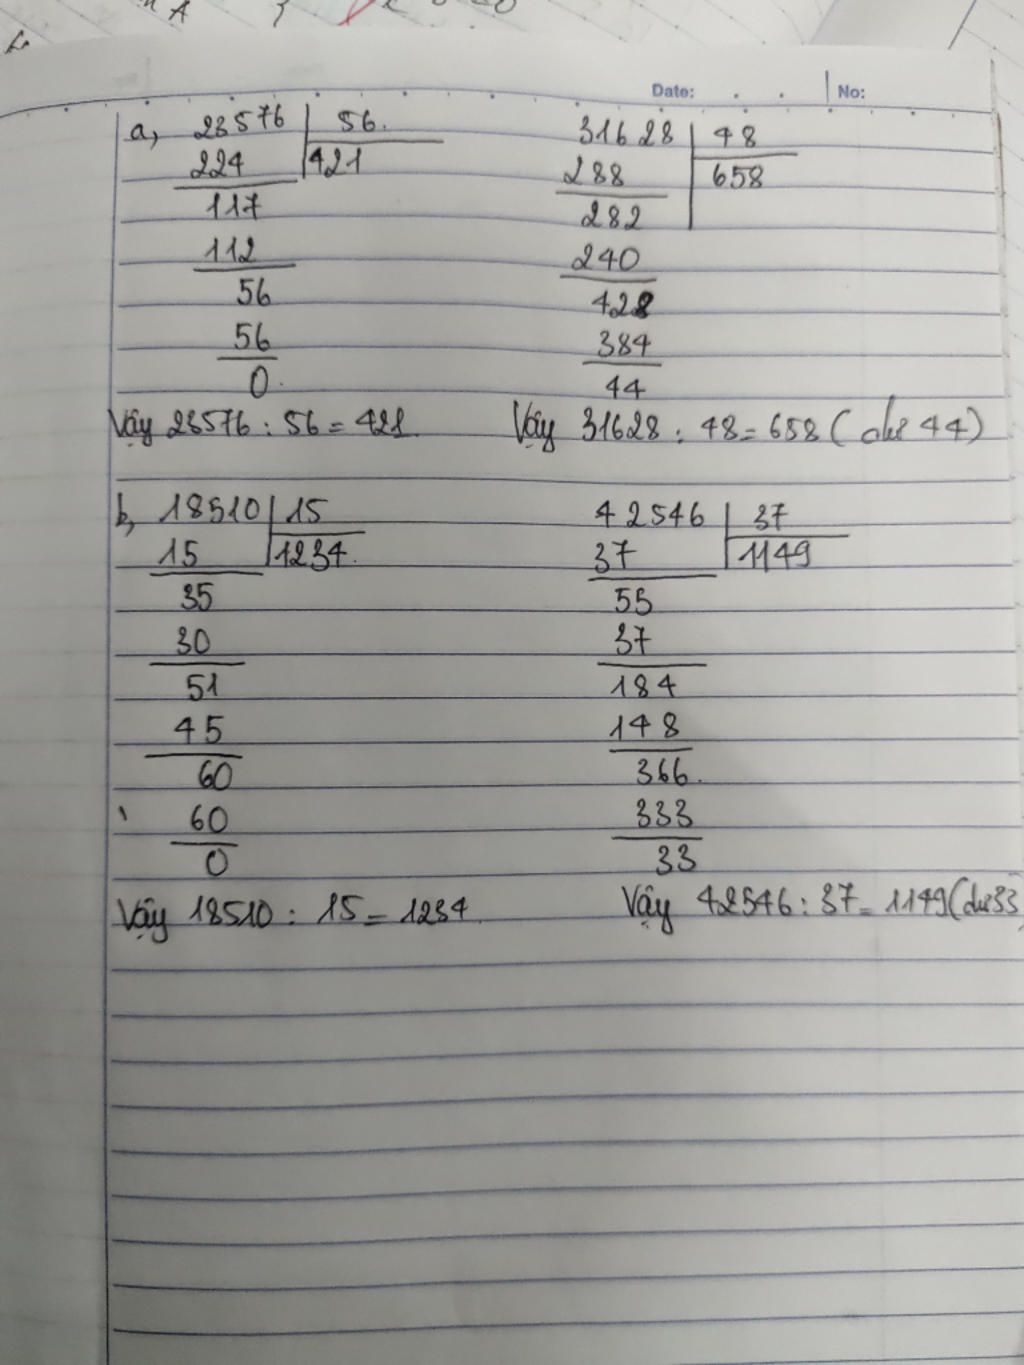 Date: No:
a, 23576 56
224 421
117
112
56
56
0
Vậy 23576 : 56 = 421
31628 48
288 658
282
240
428
384
44
Vậy 31628 : 48 = 658 ( dư 44 )
b, 18510 15
15 1234
35
30
51
45
60
60
0
Vậy 18510 : 15 = 1234
42546 37
37 1149
55
37
184
148
366
333
33
Vậy 42546 : 37 = 1149 (dư 33